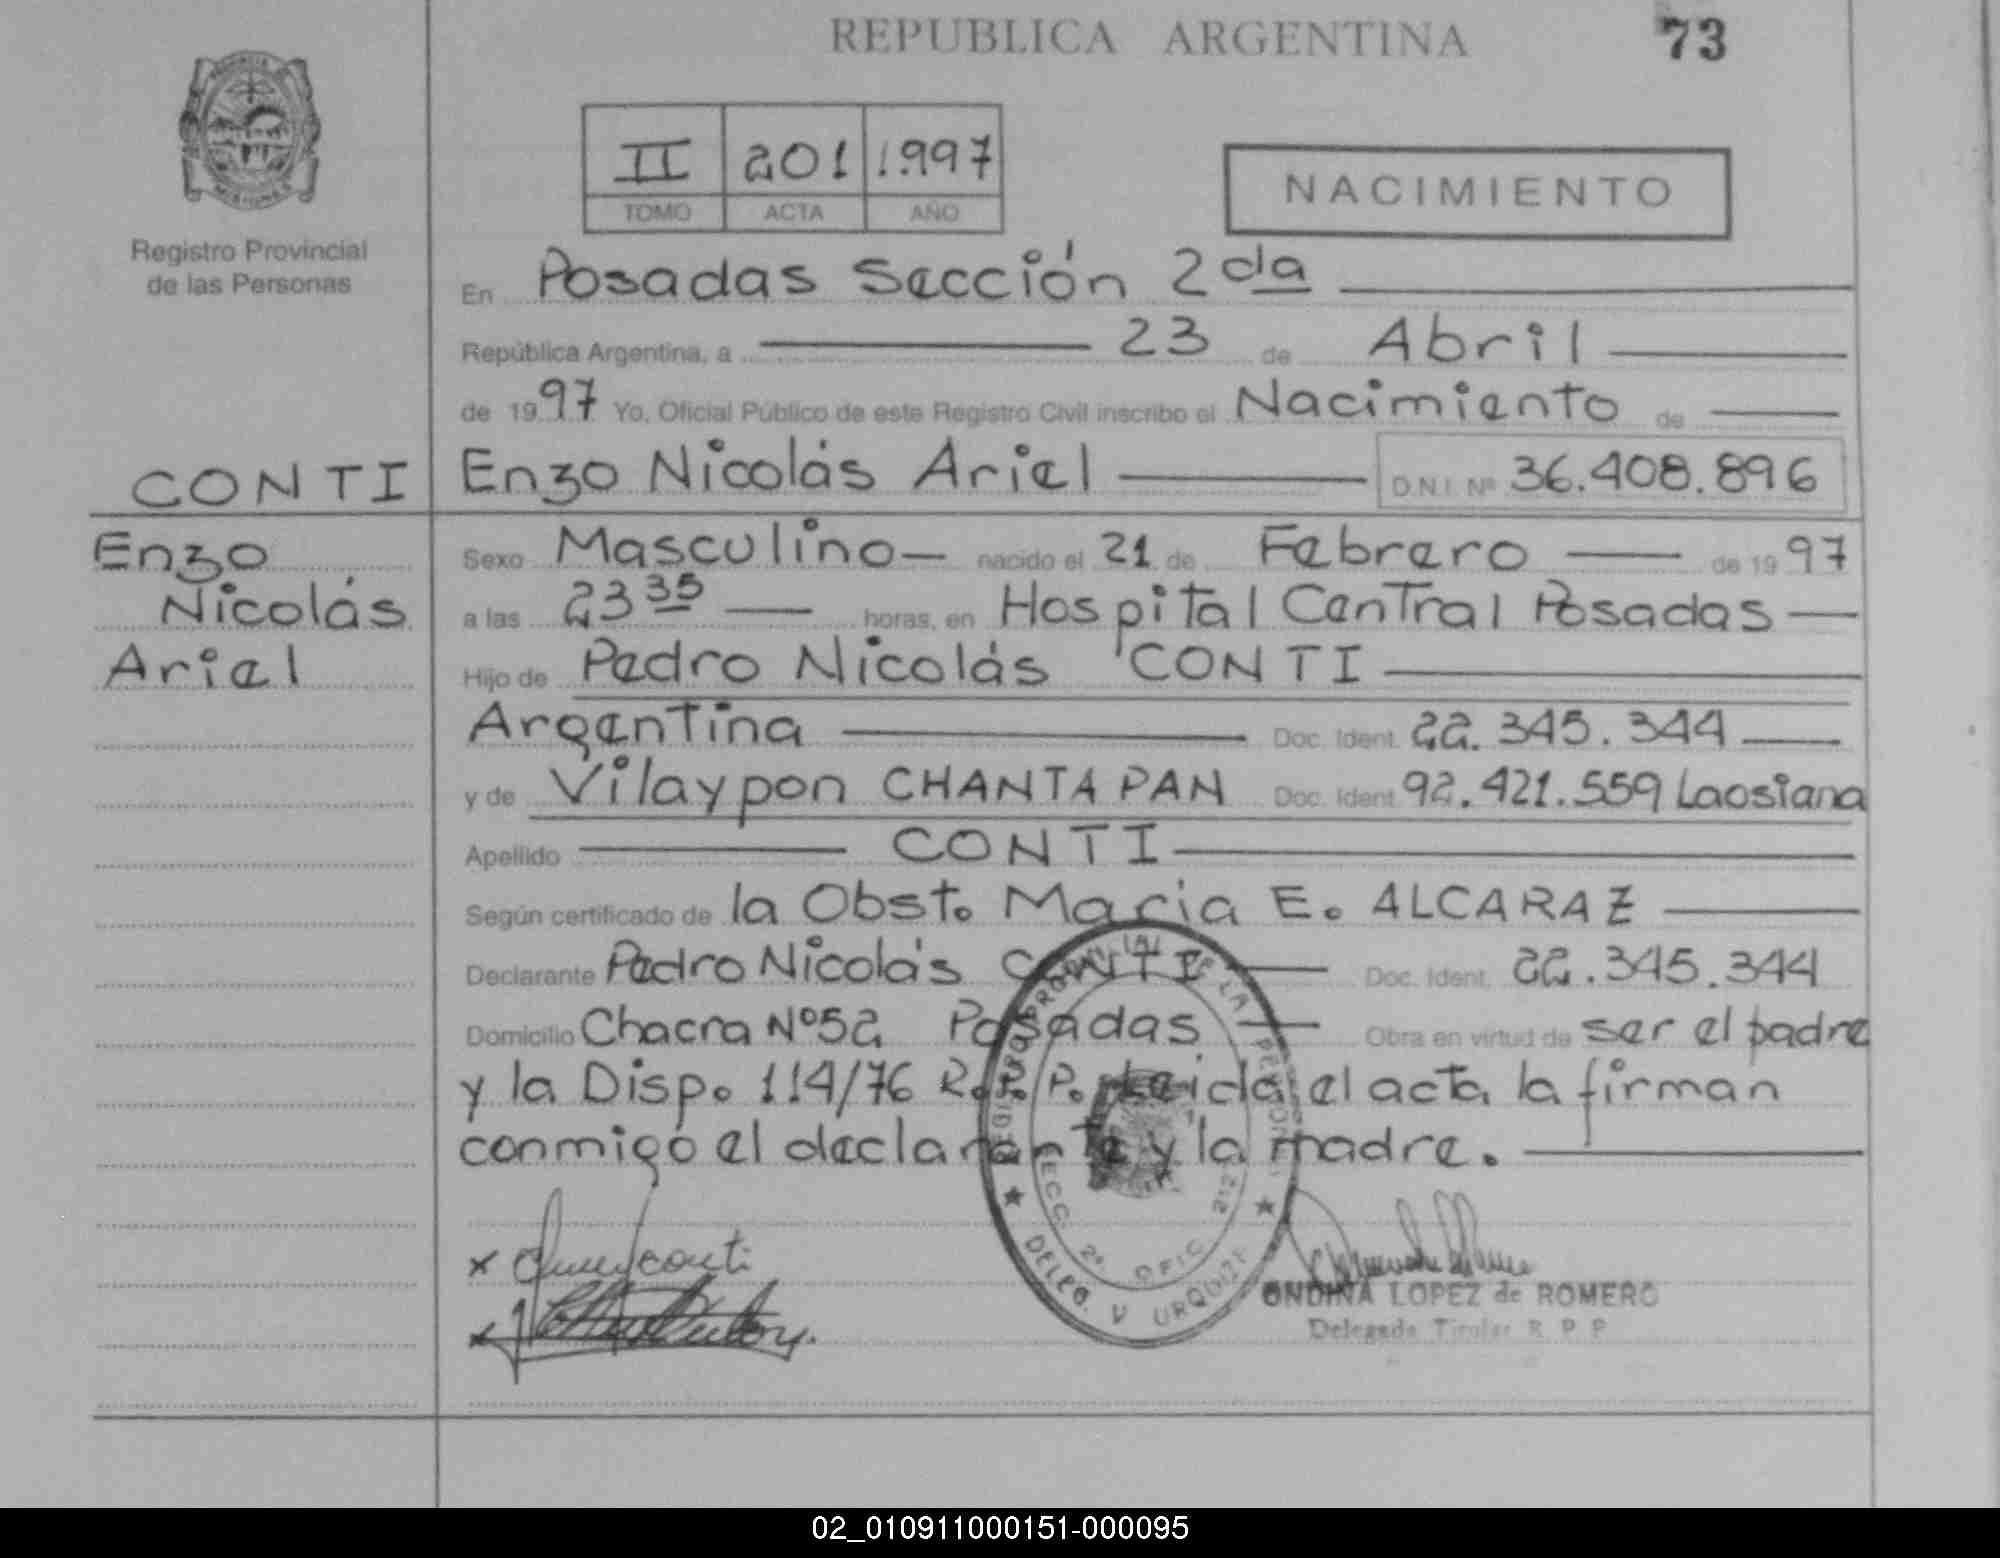 REPUBLICA ARGENTINA 73
II 201 1.997
TOMO ACTA AÑO
NACIMIENTO
Registro Provincial
de las Personas
En Posadas Sección 2da
República Argentina, a 23 de Abril
de 1997 Yo, Oficial Público de este Registro Civil inscribo el Nacimiento de
CONTI Enzo Nicolás Ariel D.N.I. Nº 36.408.896
Enzo
Nicolás
Ariel
Sexo Masculino nacido el 21 de Febrero de 1997
a las 23 35 horas, en Hospital Central Posadas
Hijo de Pedro Nicolás CONTI
Argentina Doc. Ident. 22.345.344
y de Vilaypon CHANTAPAN Doc. Ident. 92.421.559 Laosiana
Apellido CONTI
Según certificado de la Obst. Maria E. ALCARAZ
Declarante Pedro Nicolás CONTI Doc. Ident. 22.345.344
Domicilio Chacra Nº52 Posadas Obra en virtud de ser el padre
y la Disp. 114/76 R.P.P. Leida el acta la firman
conmigo el declarante y la madre.
REGISTRO PROVINCIAL DE LA PERSONAS
SECC. 2º OFIC. 212
DELEG. V URQUIZA
conti
ONDINA LOPEZ de ROMERO
Delegada Titular R. P. P.
02_010911000151-000095